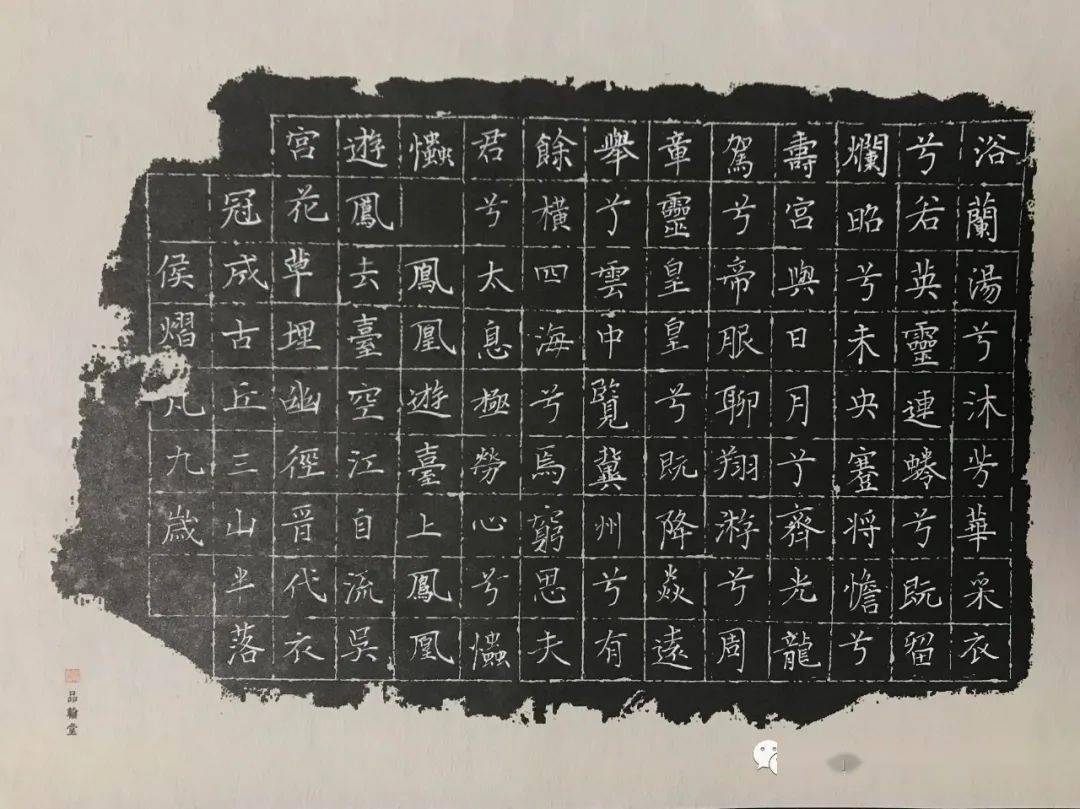 浴蘭湯兮沐芳華采衣
兮若英靈連蜷兮既留
爛昭兮未央蹇将憺兮
壽宮與日月兮齊光龍
駕兮帝服聊翔游兮周
章靈皇皇兮既降猋遠
舉兮雲中覽冀州兮有
餘橫四海兮焉窮思夫
君兮太息極勞心兮𢥞
𢥞 鳳凰遊臺上鳳凰
遊鳳去臺空江自流吳
宮花草埋幽徑晉代衣
冠成古丘三山半落
侯熠凡九歲
品翰堂